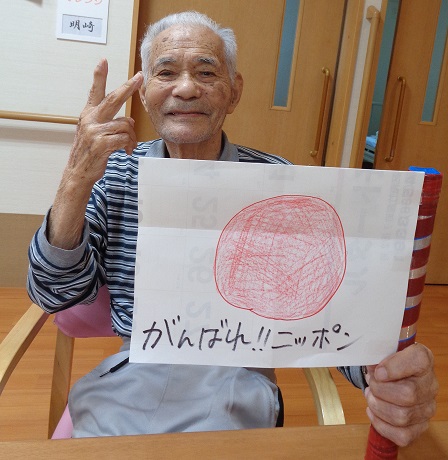 明崎
がんばれ!!ニッポン